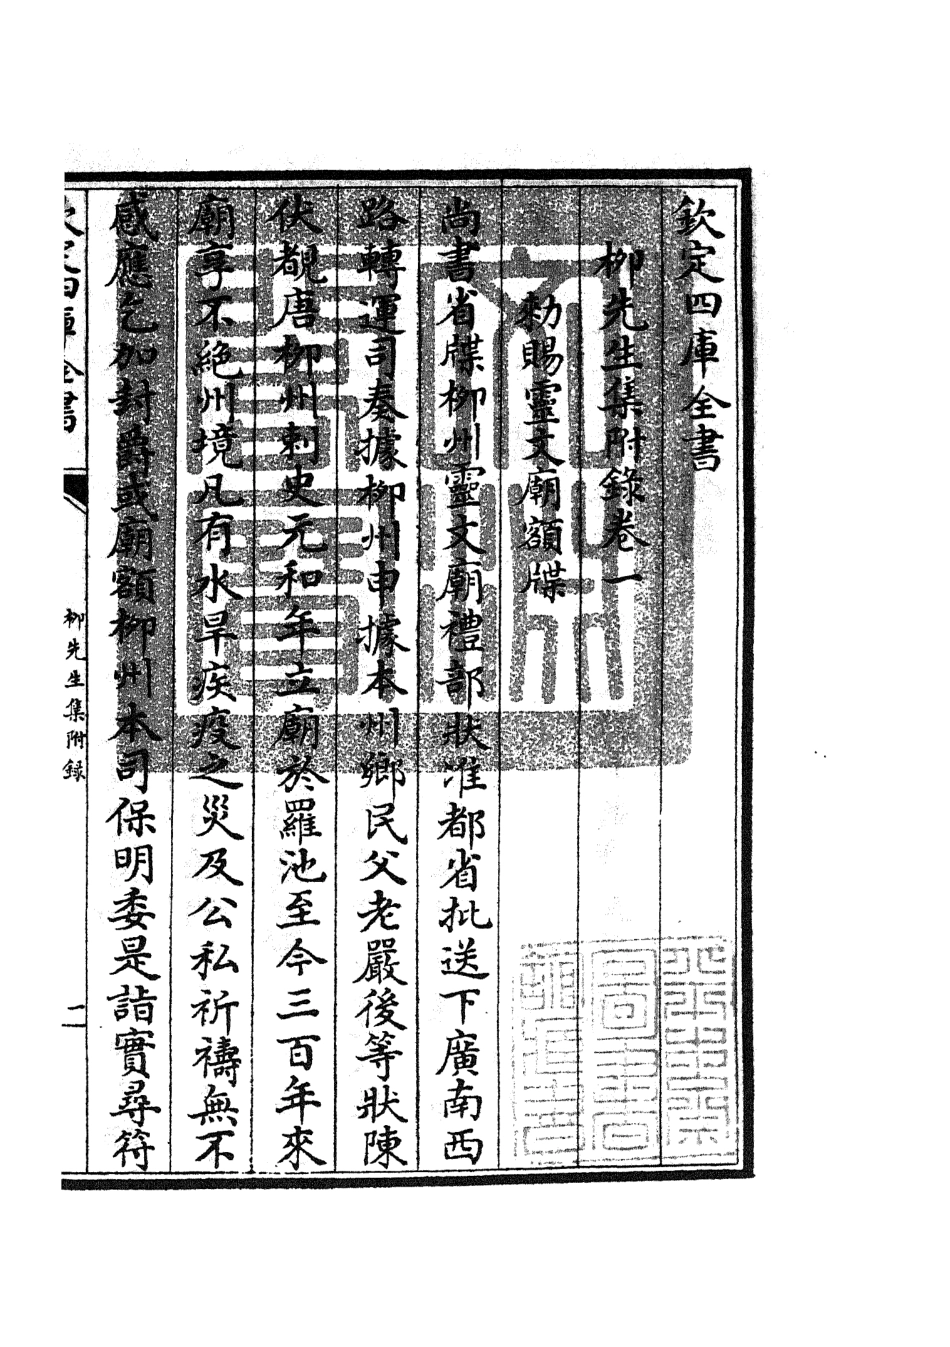 欽定四庫全書
柳先生集附錄卷一
勅賜靈文廟額牒
尚書省牒柳州靈文廟禮部狀准都省批送下廣南西
路轉運司奏據柳州申據本州鄉民父老嚴後等狀陳
伏覩唐柳州刺史元和年立廟於羅池至今三百年來
廟享不絶州境凡有水旱疾疫之災及公私祈禱無不
感應乞加封爵或廟額柳州本司保明委是詣實尋符
欽定四庫全書
柳先生集附録
二